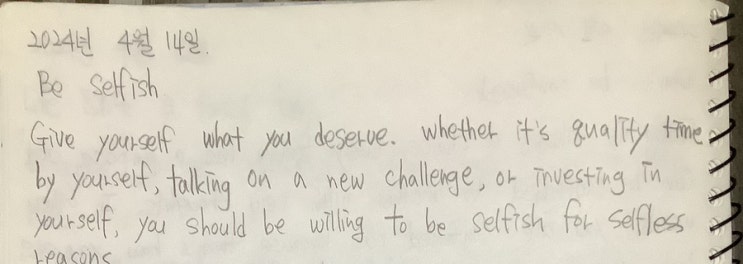 2024년 4월 14일.
Be selfish
Give yourself what you deserve. Whether it's quality time
by yourself, talking on a new challenge, or investing in
yourself, you should be willing to be selfish for selfless
reasons